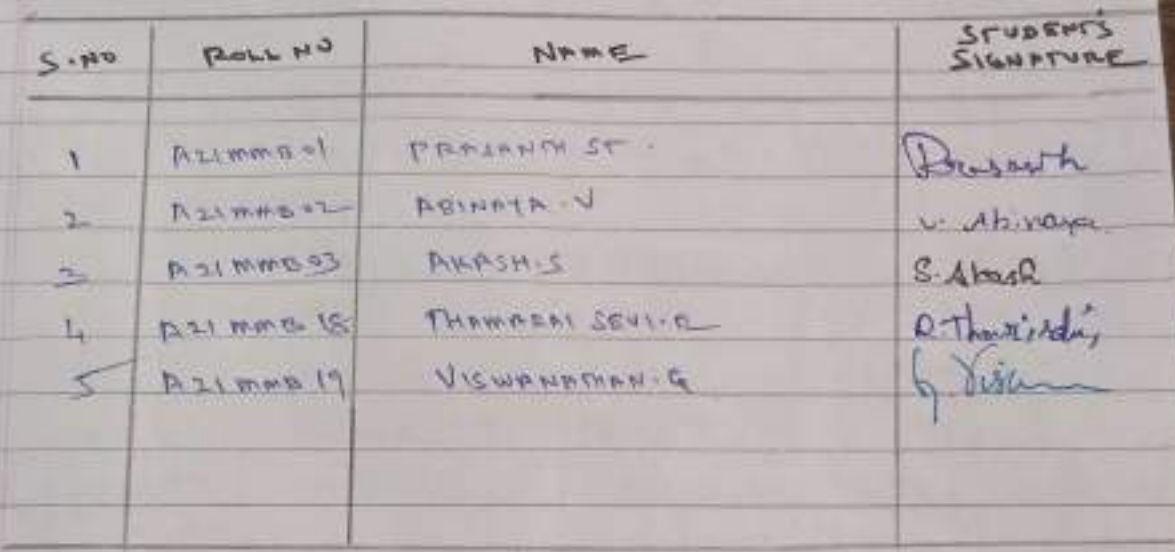 S.NO ROLL NO NAME STUDENT'S SIGNATURE
1 A21MMB01 PRASANTH ST. Prasanth
2 A21MMB02 ABINAYA.V V. Abinaya
3 A21MMB03 AKASH.S S. Akash
4 A21MMB18 THAMARAI SEVI.R
5 A21MMB19 VISWANATHAN.G